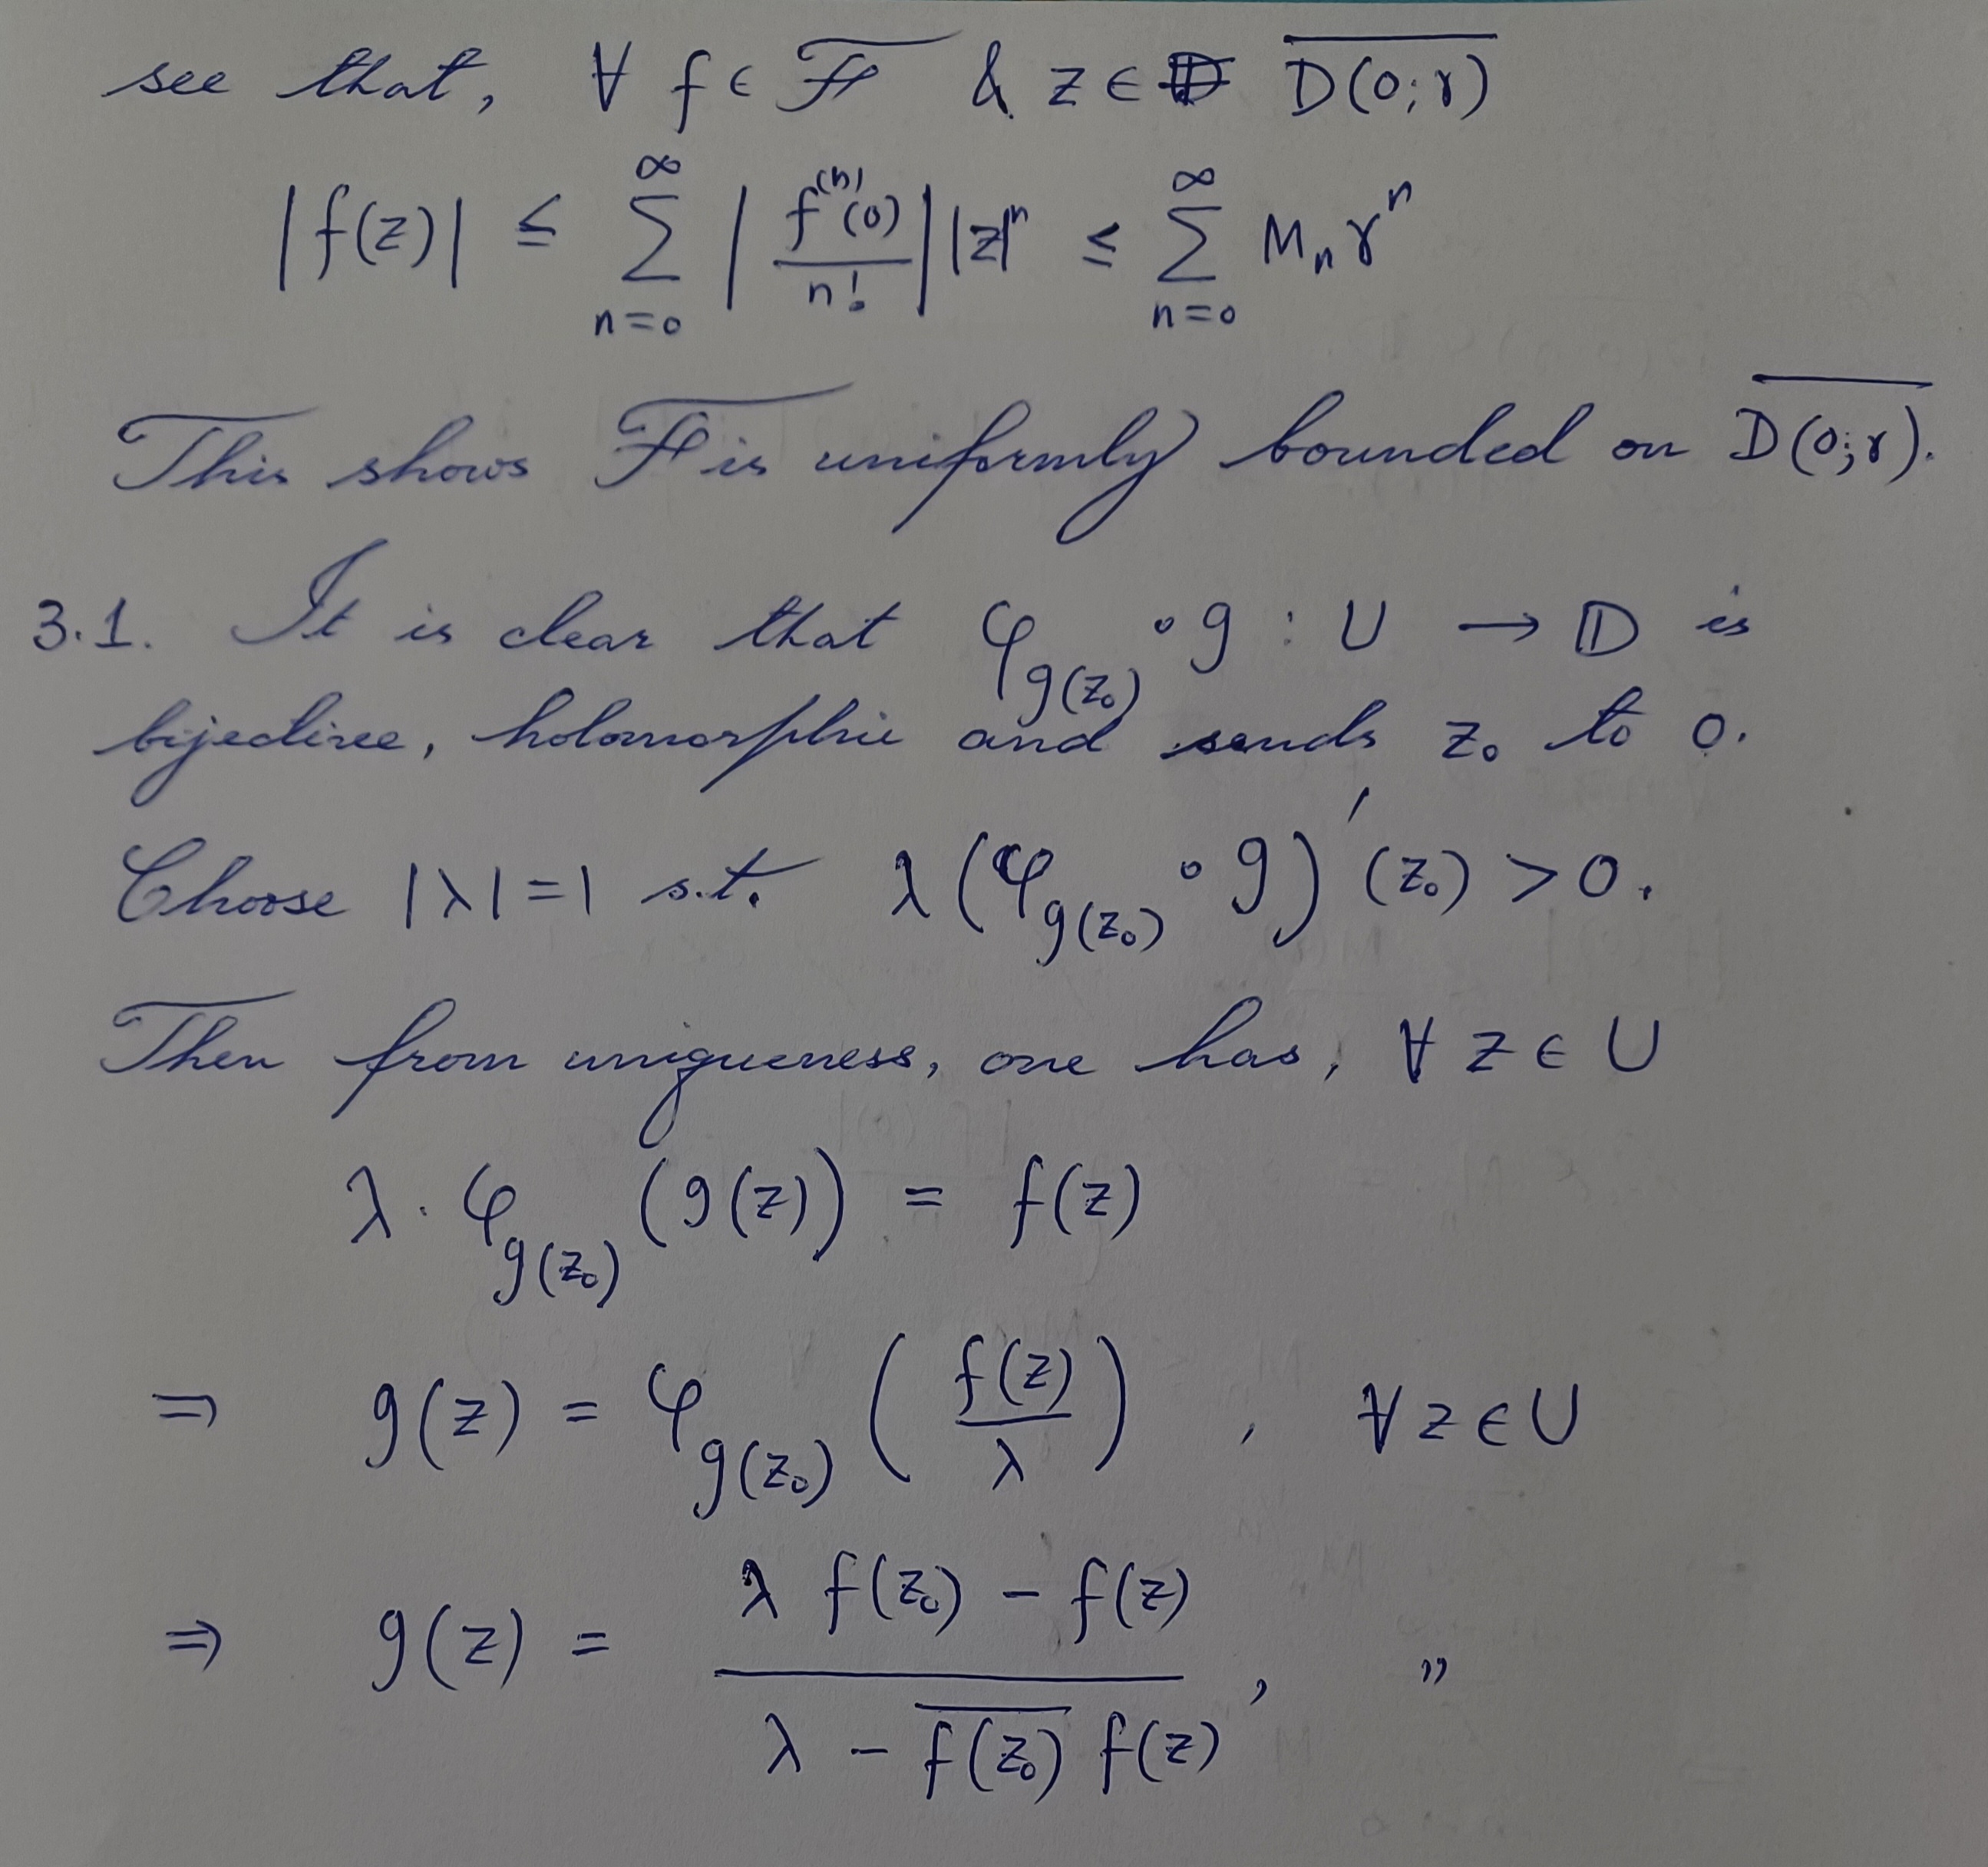 see that, ∀ f ∈ ℱ & z ∈ \overline{D(0;r)}
|f(z)| ≤ \sum_{n=0}^{∞} |\frac{f^{(n)}(0)}{n!}| |z|^n ≤ \sum_{n=0}^{∞} M_n r^n
This shows ℱ is uniformly bounded on \overline{D(0;r)}.
3.1. It is clear that φ_{g(z_0)} ∘ g : U → 𝔻 is
bijective, holomorphic and sends z_0 to 0.
Choose |λ|=1 s.t. λ(φ_{g(z_0)} ∘ g)'(z_0) > 0.
Then from uniqueness, one has, ∀ z ∈ U
λ. φ_{g(z_0)} (g(z)) = f(z)
⇒ g(z) = φ_{g(z_0)} (\frac{f(z)}{λ}) , ∀ z ∈ U
⇒ g(z) = \frac{λ f(z_0) - f(z)}{λ - \overline{f(z_0)} f(z)} , ”